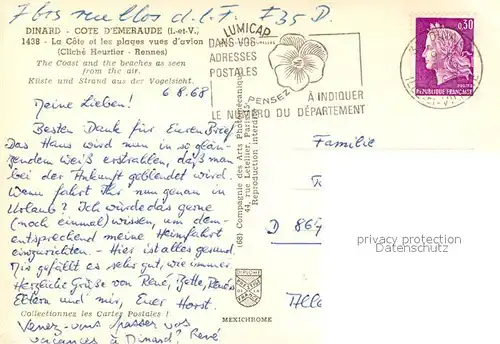 DINARD - COTE D'EMERAUDE (I.-et-V.)
1438 - La Côte et les plages vues d'avion
(Cliché Heurtier - Rennes)
The Coast and the beaches as seen
from the air.
Küste und Strand aus der Vogelsicht.
LUMICAP
DANS VOS
ADRESSES
POSTALES
PENSEZ
À INDIQUER
LE NUMERO DU DÉPARTEMENT
0,30
REPUBLIQUE FRANÇAISE
6.8.68
Meine Lieben!
Besten Dank für Euren Brief.
Das Haus wird nun in so glän-
zendem Weiß erstrahlen, daß man
bei der Ankunft geblendet wird.
Wann fahrt Ihr nun genau in
Urlaub? Ich würde das gerne
(noch einmal) wissen, um dem-
entsprechend meine Heimfahrt
einzurichten. - Hier ist alles gesund.
Mir gefällt es sehr gut, wie immer.
Herzliche Grüße von René, Bette, Renés
Eltern und mir, Euer Horst.
Collectionnez les Cartes Postales !
Venez-vous passer vos
vacances à Dinard? René
(68) Compagnie des Arts Photomécaniques
44, rue Letellier, Paris-15
Reproduction interdite
MEXICHROME
Familie
D 867
Alle
privacy protection